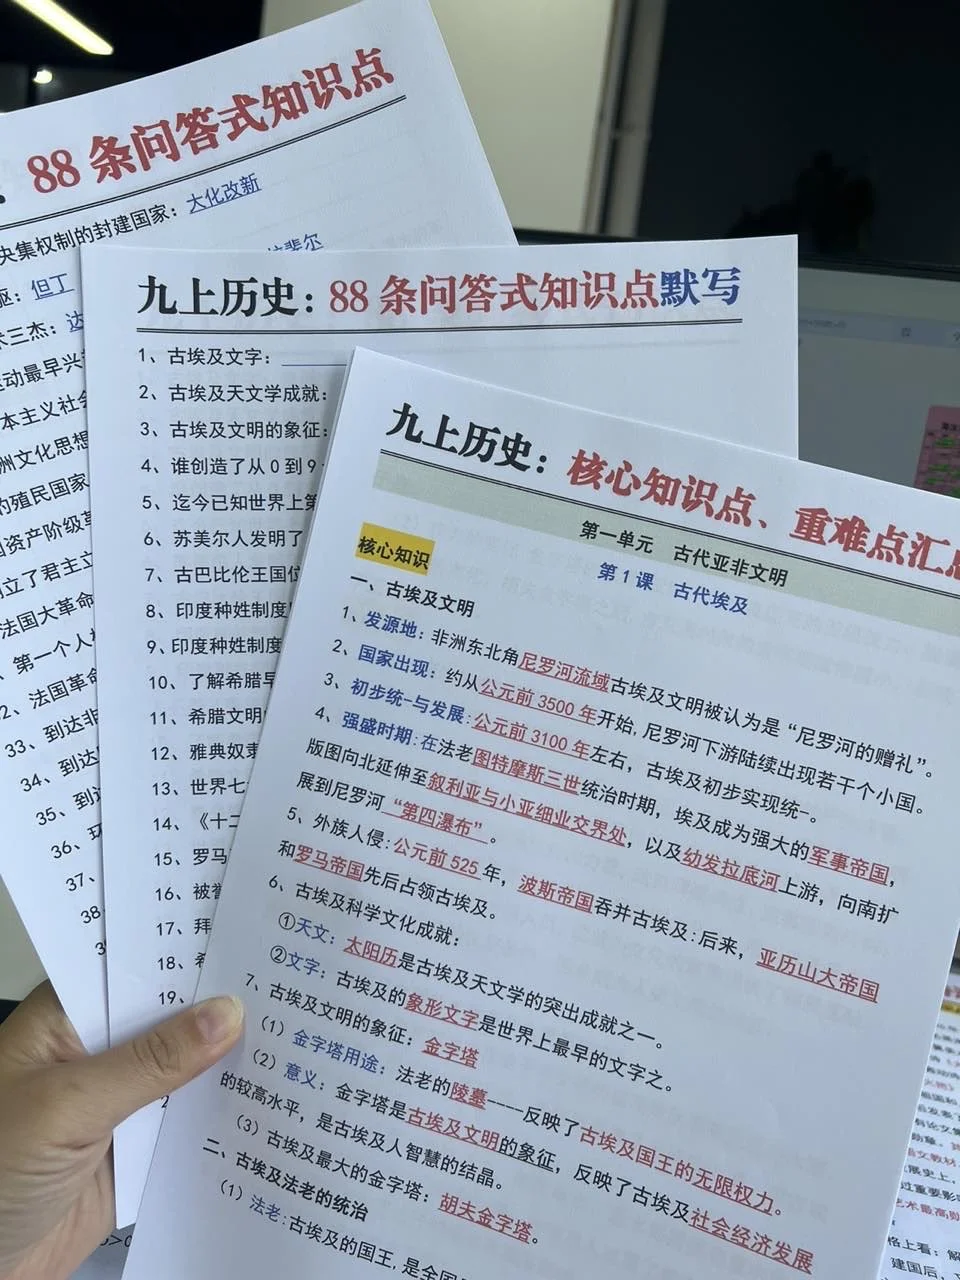 88 条问答式知识点
央集权制的封建国家：大化改新
但丁
术三杰：达
运动最早兴
本主义社会
洲文化思想
的殖民国家
国资产阶级革
创立了君主立
法国大革命
、第一个人
2、法国革命
33、到达非
34、到达
35、到达
36、环
37、
38
九上历史：88 条问答式知识点默写
1、古埃及文字：
2、古埃及天文学成就：
3、古埃及文明的象征：
4、谁创造了从 0 到 9
5、迄今已知世界上第
6、苏美尔人发明了
7、古巴比伦王国位
8、印度种姓制度
9、印度种姓制度
10、了解希腊早
11、希腊文明
12、雅典奴隶
13、世界七
14、《十二
15、罗马
16、被誉
17、拜
18、希
19、
九上历史：核心知识点、重难点汇总
第一单元 古代亚非文明
第 1 课 古代埃及
核心知识
一、古埃及文明
1、发源地：非洲东北角尼罗河流域古埃及文明被认为是“尼罗河的赠礼”。
2、国家出现：约从公元前 3500 年开始，尼罗河下游陆续出现若干个小国。
3、初步统一与发展：公元前 3100 年左右，古埃及初步实现统一。
4、强盛时期：在法老图特摩斯三世统治时期，埃及成为强大的军事帝国，
版图向北延伸至叙利亚与小亚细业交界处，以及幼发拉底河上游，向南扩
展到尼罗河“第四瀑布”。
5、外族人侵：公元前 525 年，波斯帝国吞并古埃及：后来，亚历山大帝国
和罗马帝国先后占领古埃及。
6、古埃及科学文化成就：
①天文：太阳历是古埃及天文学的突出成就之一。
②文字：古埃及的象形文字是世界上最早的文字之。
7、古埃及文明的象征：金字塔
（1）金字塔用途：法老的陵墓-----反映了古埃及国王的无限权力。
（2）意义：金字塔是古埃及文明的象征，反映了古埃及社会经济发展
的较高水平，是古埃及人智慧的结晶。
（3）古埃及最大的金字塔：胡夫金字塔。
二、古埃及法老的统治
（1）法老：古埃及的国王，是全国